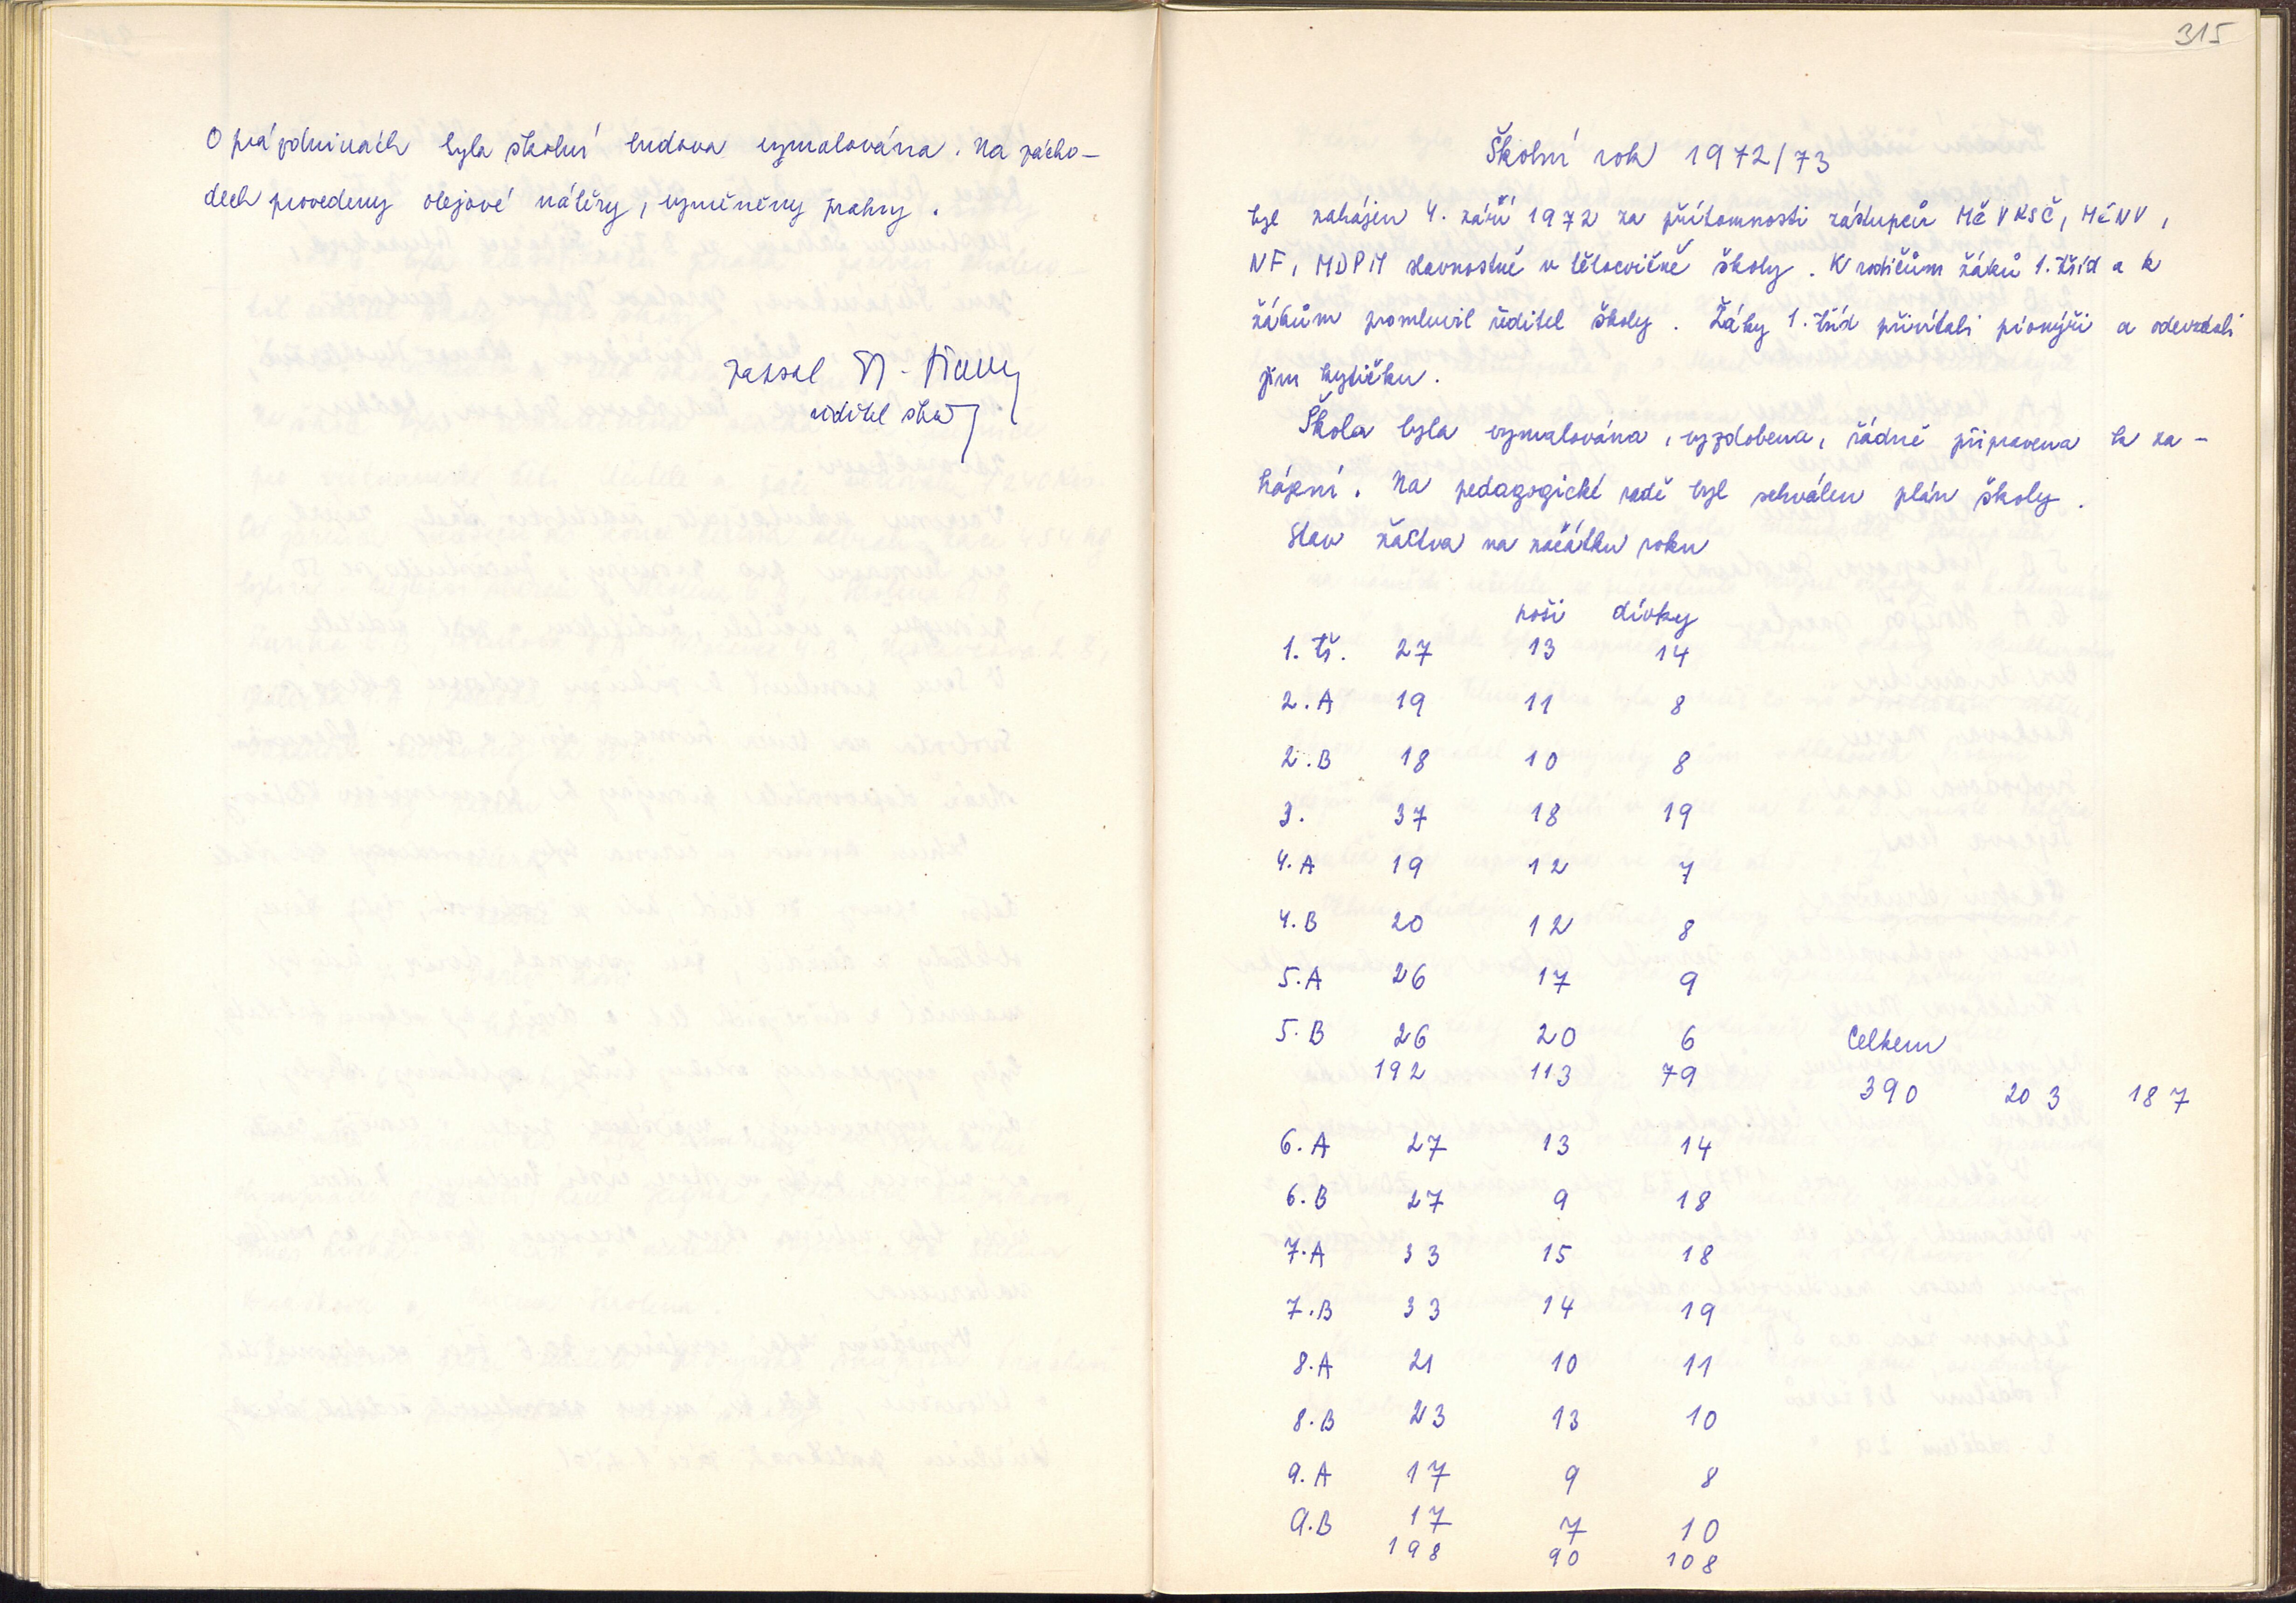 O prázdninách byla školní budova vymalována. Na zácho-
dech provedeny olejové nátěry, vyměněny prahy.
zapsal
ředitel školy
315
Školní rok 1972/73
byl zahájen 4. září 1972 za přítomnosti zástupců MěVKSČ, MěNV,
NF, MDPM slavnostně v tělocvičně školy. K rodičům žáků 1. tříd a k
žákům promluvil ředitel školy. Žáky 1. tříd přivítali pionýři a odevzdali
jim kytičku.
Škola byla vymalována, vyzdobena, řádně připravena k za-
hájení. Na pedagogické radě byl schválen plán školy.
Stav žactva na začátku roku
hoši dívky
1. tř. 27 13 14
2.A 19 11 8
2.B 18 10 8
3. 37 18 19
4.A 19 12 7
4.B 20 12 8
5.A 26 17 9
5.B 26 20 6 Celkem
192 113 79
390 203 187
6.A 27 13 14
6.B 27 9 18
7.A 33 15 18
7.B 33 14 19
8.A 21 10 11
8.B 23 13 10
9.A 17 9 8
9.B 17 7 10
198 90 108